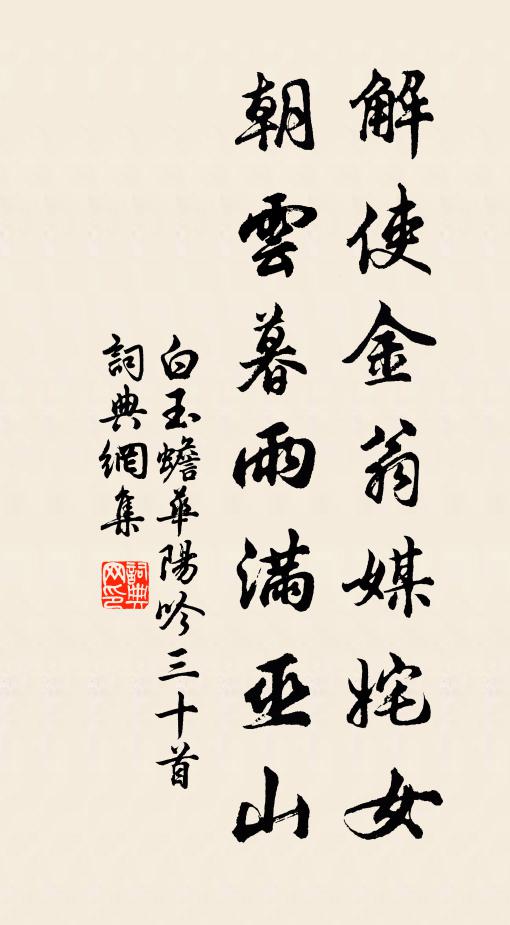 解使金翁媒姹女
朝雲暮雨滿巫山
白玉蟾華陽吟三十首
詞典網集
詞典
网印